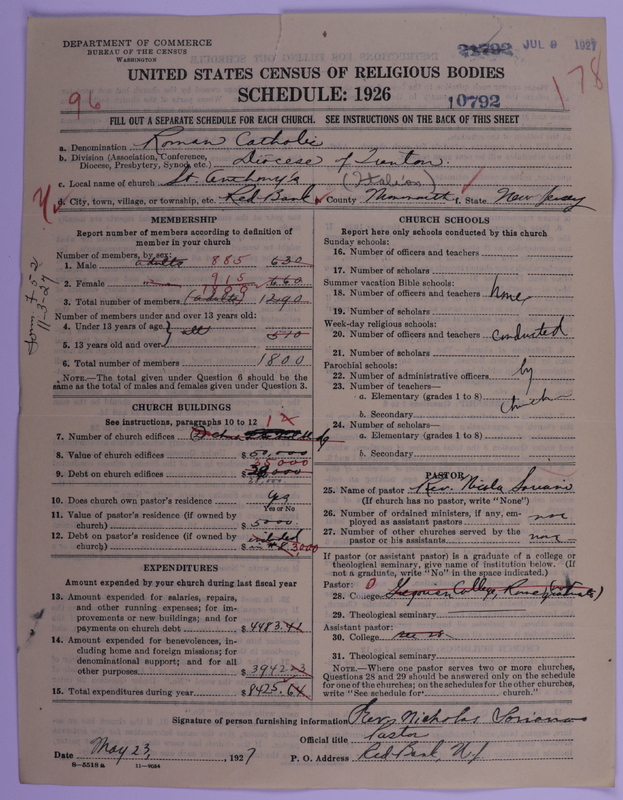 DEPARTMENT OF COMMERCE
BUREAU OF THE CENSUS
WASHINGTON
21792 JUL 9 1927
UNITED STATES CENSUS OF RELIGIOUS BODIES
SCHEDULE: 1926
96
10792
178
FILL OUT A SEPARATE SCHEDULE FOR EACH CHURCH. SEE INSTRUCTIONS ON THE BACK OF THIS SHEET
a. Denomination Roman Catholic
b. Division (Association, Conference, Diocese, Presbytery, Synod, etc.) Diocese of Trenton.
c. Local name of church St. Anthony's (Italian)
d. City, town, village, or township, etc. Red Bank County Monmouth f. State New Jersey
11-3-27
MEMBERSHIP
Report number of members according to definition of
member in your church
Number of members, by sex:
1. Male adults 885 630
2. Female 915 660
3. Total number of members (adults) 1800 1290
Number of members under and over 13 years old:
4. Under 13 years of age } all
5. 13 years old and over } 510
6. Total number of members 1800
NOTE.—The total given under Question 6 should be the
same as the total of males and females given under Question 3.
CHURCH BUILDINGS
See instructions, paragraphs 10 to 12
7. Number of church edifices
8. Value of church edifices $ 50,000
35000
9. Debt on church edifices $
10. Does church own pastor's residence Yes
Yes or No
11. Value of pastor's residence (if owned by
church) $ 5000.
12. Debt on pastor's residence (if owned by
church) $ included in # 8 3000
EXPENDITURES
Amount expended by your church during last fiscal year
13. Amount expended for salaries, repairs,
and other running expenses; for im-
provements or new buildings; and for
payments on church debt $ 4483.41
14. Amount expended for benevolences, in-
cluding home and foreign missions; for
denominational support; and for all
other purposes $ 3942.23
15. Total expenditures during year $ 8425.64
CHURCH SCHOOLS
Report here only schools conducted by this church
Sunday schools:
16. Number of officers and teachers
17. Number of scholars
Summer vacation Bible schools:
18. Number of officers and teachers None
19. Number of scholars
Week-day religious schools:
20. Number of officers and teachers conducted
21. Number of scholars
Parochial schools:
22. Number of administrative officers by
23. Number of teachers—
a. Elementary (grades 1 to 8) church
b. Secondary
24. Number of scholars—
a. Elementary (grades 1 to 8)
b. Secondary
PASTOR
25. Name of pastor Rev. Nicola Soriano
(If church has no pastor, write "None")
26. Number of ordained ministers, if any, em-
ployed as assistant pastors none
27. Number of other churches served by the
pastor or his assistants none
If pastor (or assistant pastor) is a graduate of a college or
theological seminary, give name of institution below. (If
not a graduate, write "No" in the space indicated.)
Pastor: 0
28. College Gregorian College, Rome (graduate)
29. Theological seminary
Assistant pastor:
30. College
31. Theological seminary
NOTE.—Where one pastor serves two or more churches,
Questions 28 and 29 should be answered only on the schedule
for one of the churches; on the schedules for the other churches,
write "See schedule for church."
Signature of person furnishing information Rev. Nicholas Soriano
Official title Pastor
Date May 23, 1927 P. O. Address Red Bank, N.J.
8-5518 a 11-9034